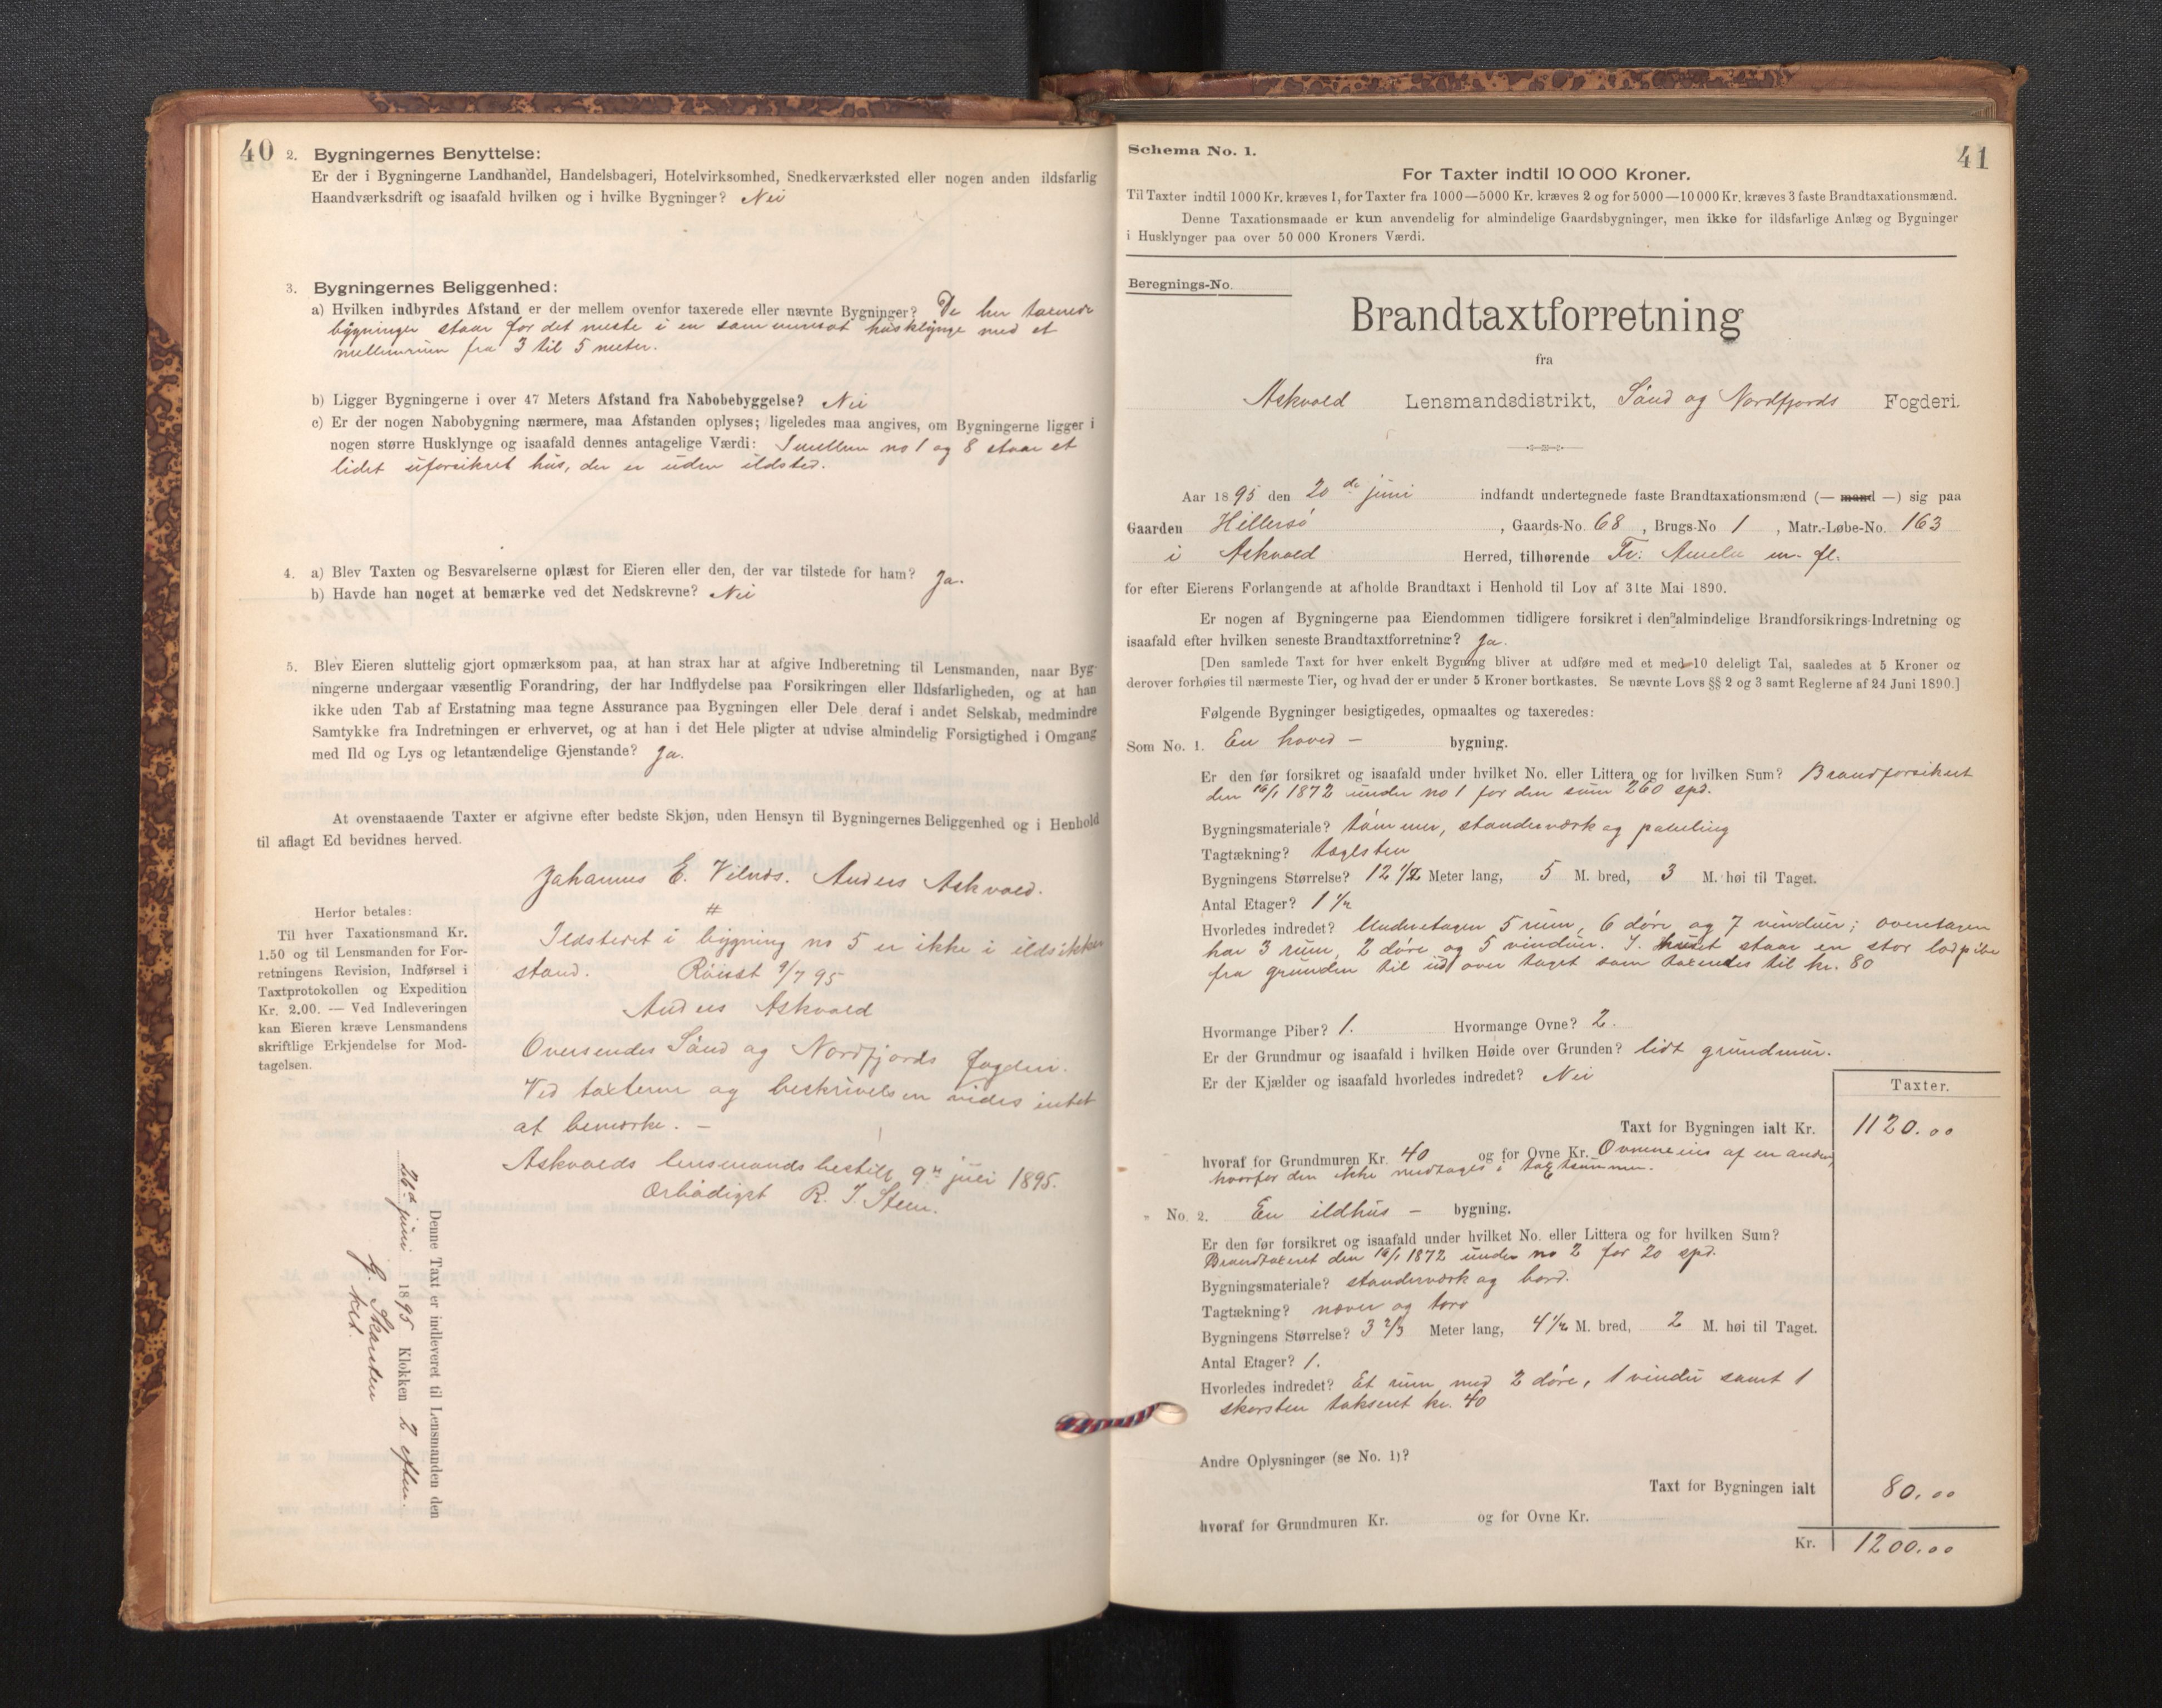 40
2. Bygningernes Benyttelse:
Er der i Bygningerne Landhandel, Handelsbageri, Hotelvirksomhed, Snedkerværksted eller nogen anden ildsfarlig
Haandværksdrift og isaafald hvilken og i hvilke Bygninger? Nei
3. Bygningernes Beliggenhed:
a) Hvilken indbyrdes Afstand er der mellem ovenfor taxerede eller nævnte Bygninger? De her taxerede
bygninger staar for det meste i en sammensat husklynge med et
mellemrum fra 3 til 5 meter.
b) Ligger Bygningerne i over 47 Meters Afstand fra Nabobebyggelse? Nei
c) Er der nogen Nabobygning nærmere, maa Afstanden oplyses; ligeledes maa angives, om Bygningerne ligger i
nogen større Husklynge og isaafald dennes antagelige Værdi: Imellem no 1 og 8 staar et
lidet uforsikret hus, der er uden ildsted.
4. a) Blev Taxten og Besvarelserne oplæst for Eieren eller den, der var tilstede for ham? Ja.
b) Havde han noget at bemærke ved det Nedskrevne? Nei
5. Blev Eieren sluttelig gjort opmærksom paa, at han strax har at afgive Indberetning til Lensmanden, naar Byg-
ningerne undergaar væsentlig Forandring, der har Indflydelse paa Forsikringen eller Ildsfarligheden, og at han
ikke uden Tab af Erstatning maa tegne Assurance paa Bygningen eller Dele deraf i andet Selskab, medmindre
Samtykke fra Indretningen er erhvervet, og at han i det Hele pligter at udvise almindelig Forsigtighed i Omgang
med Ild og Lys og letantændelige Gjenstande? Ja.
At ovenstaaende Taxter er afgivne efter bedste Skjøn, uden Hensyn til Bygningernes Beliggenhed og i Henhold
til aflagt Ed bevidnes herved.
Johannes E. Vilnes. Anders Askvold.
#
Ildstedet i bygning no 5 er ikke i ildsikker
stand. 9/7 95
Anders Askvold
Oversendes Sønd og Nordfjords fogderi.
Ved taxterne og beskrivelsen vides intet
at bemærke. –
Askvolds lensmandsbestill. 9de juli 1895.
Ærbødigst R. J. Steen.
Herfor betales:
Til hver Taxationsmand Kr.
1.50 og til Lensmanden for For-
retningens Revision, Indførsel i
Taxtprotokollen og Expedition
Kr. 2.00. — Ved Indleveringen
kan Eieren kræve Lensmandens
skriftlige Erkjendelse for Mod-
tagelsen.
Denne Taxt er indleveret til Lensmanden den
26d juni 1895 Klokken 2 efterm.
G. Skarsten
kst.
41
Schema No. 1.
For Taxter indtil 10 000 Kroner.
Til Taxter indtil 1000 Kr. kræves 1, for Taxter fra 1000—5000 Kr. kræves 2 og for 5000—10 000 Kr. kræves 3 faste Brandtaxationsmænd.
Denne Taxationsmaade er kun anvendelig for almindelige Gaardsbygninger, men ikke for ildsfarlige Anlæg og Bygninger
i Husklynger paa over 50 000 Kroners Værdi.
Beregnings-No.
Brandtaxtforretning
fra
Askvold Lensmandsdistrikt, Sønd og Nordfjords Fogderi.
Aar 1895 den 20de juni indfandt undertegnede faste Brandtaxationsmænd (— mand —) sig paa
Gaarden Hillersø, Gaards-No. 68, Brugs-No 1, Matr.-Løbe-No. 163
i Askvold Herred, tilhørende Fr: m. fl.
for efter Eierens Forlangende at afholde Brandtaxt i Henhold til Lov af 31te Mai 1890.
Er nogen af Bygningerne paa Eiendommen tidligere forsikret i den almindelige Brandforsikrings-Indretning og
isaafald efter hvilken seneste Brandtaxtforretning? Ja.
[Den samlede Taxt for hver enkelt Bygning bliver at udføre med et med 10 deleligt Tal, saaledes at 5 Kroner og
derover forhøies til nærmeste Tier, og hvad der er under 5 Kroner bortkastes. Se nævnte Lovs §§ 2 og 3 samt Reglerne af 24 Juni 1890.]
Følgende Bygninger besigtigedes, opmaaltes og taxeredes:
Som No. 1. En hoved – bygning.
Er den før forsikret og isaafald under hvilket No. eller Littera og for hvilken Sum? Brandforsikret
den 16/1 1872 under no 1 for den sum 260 spd.
Bygningsmateriale? tømmer, standerværk og paneling
Tagtækning? taglsten
Bygningens Størrelse? 12 1/2 Meter lang, 5 M. bred, 3 M. høi til Taget.
Antal Etager? 1 1/2
Hvorledes indredet? Underetagen 5 rum, 6 døre og 7 vinduer; overetagen
har 3 rum, 2 døre og 5 vinduer. I huset staar en stor lodpibe
fra grunden til ud over taget som taxeredes til kr. 80
Hvormange Piber? 1. Hvormange Ovne? 2.
Er der Grundmur og isaafald i hvilken Høide over Grunden? lidt grundmur.
Er der Kjælder og isaafald hvorledes indredet? Nei
Taxter.
Taxt for Bygningen ialt Kr. 1120.00
hvoraf for Grundmuren Kr. 40 og for Ovne Kr. Ovnene eies af en anden,
hvorfor den ikke medtages i taxtsummen.
" No. 2. En ildhus – bygning.
Er den før forsikret og isaafald under hvilket No. eller Littera og for hvilken Sum?
Brandtaxeret den 16/1 1872 under no 2 for 20 spd.
Bygningsmateriale? standerværk og bord.
Tagtækning? næver og torv
Bygningens Størrelse? 3 2/3 Meter lang, 4 1/2 M. bred, 2 M. høi til Taget.
Antal Etager? 1.
Hvorledes indredet? Et rum med 2 døre, 1 vindu samt 1
skorsten takseret kr. 40
Andre Oplysninger (se No. 1)?
Taxt for Bygningen ialt 80.00
hvoraf for Grundmuren Kr. og for Ovne Kr.
Kr. 1200.00